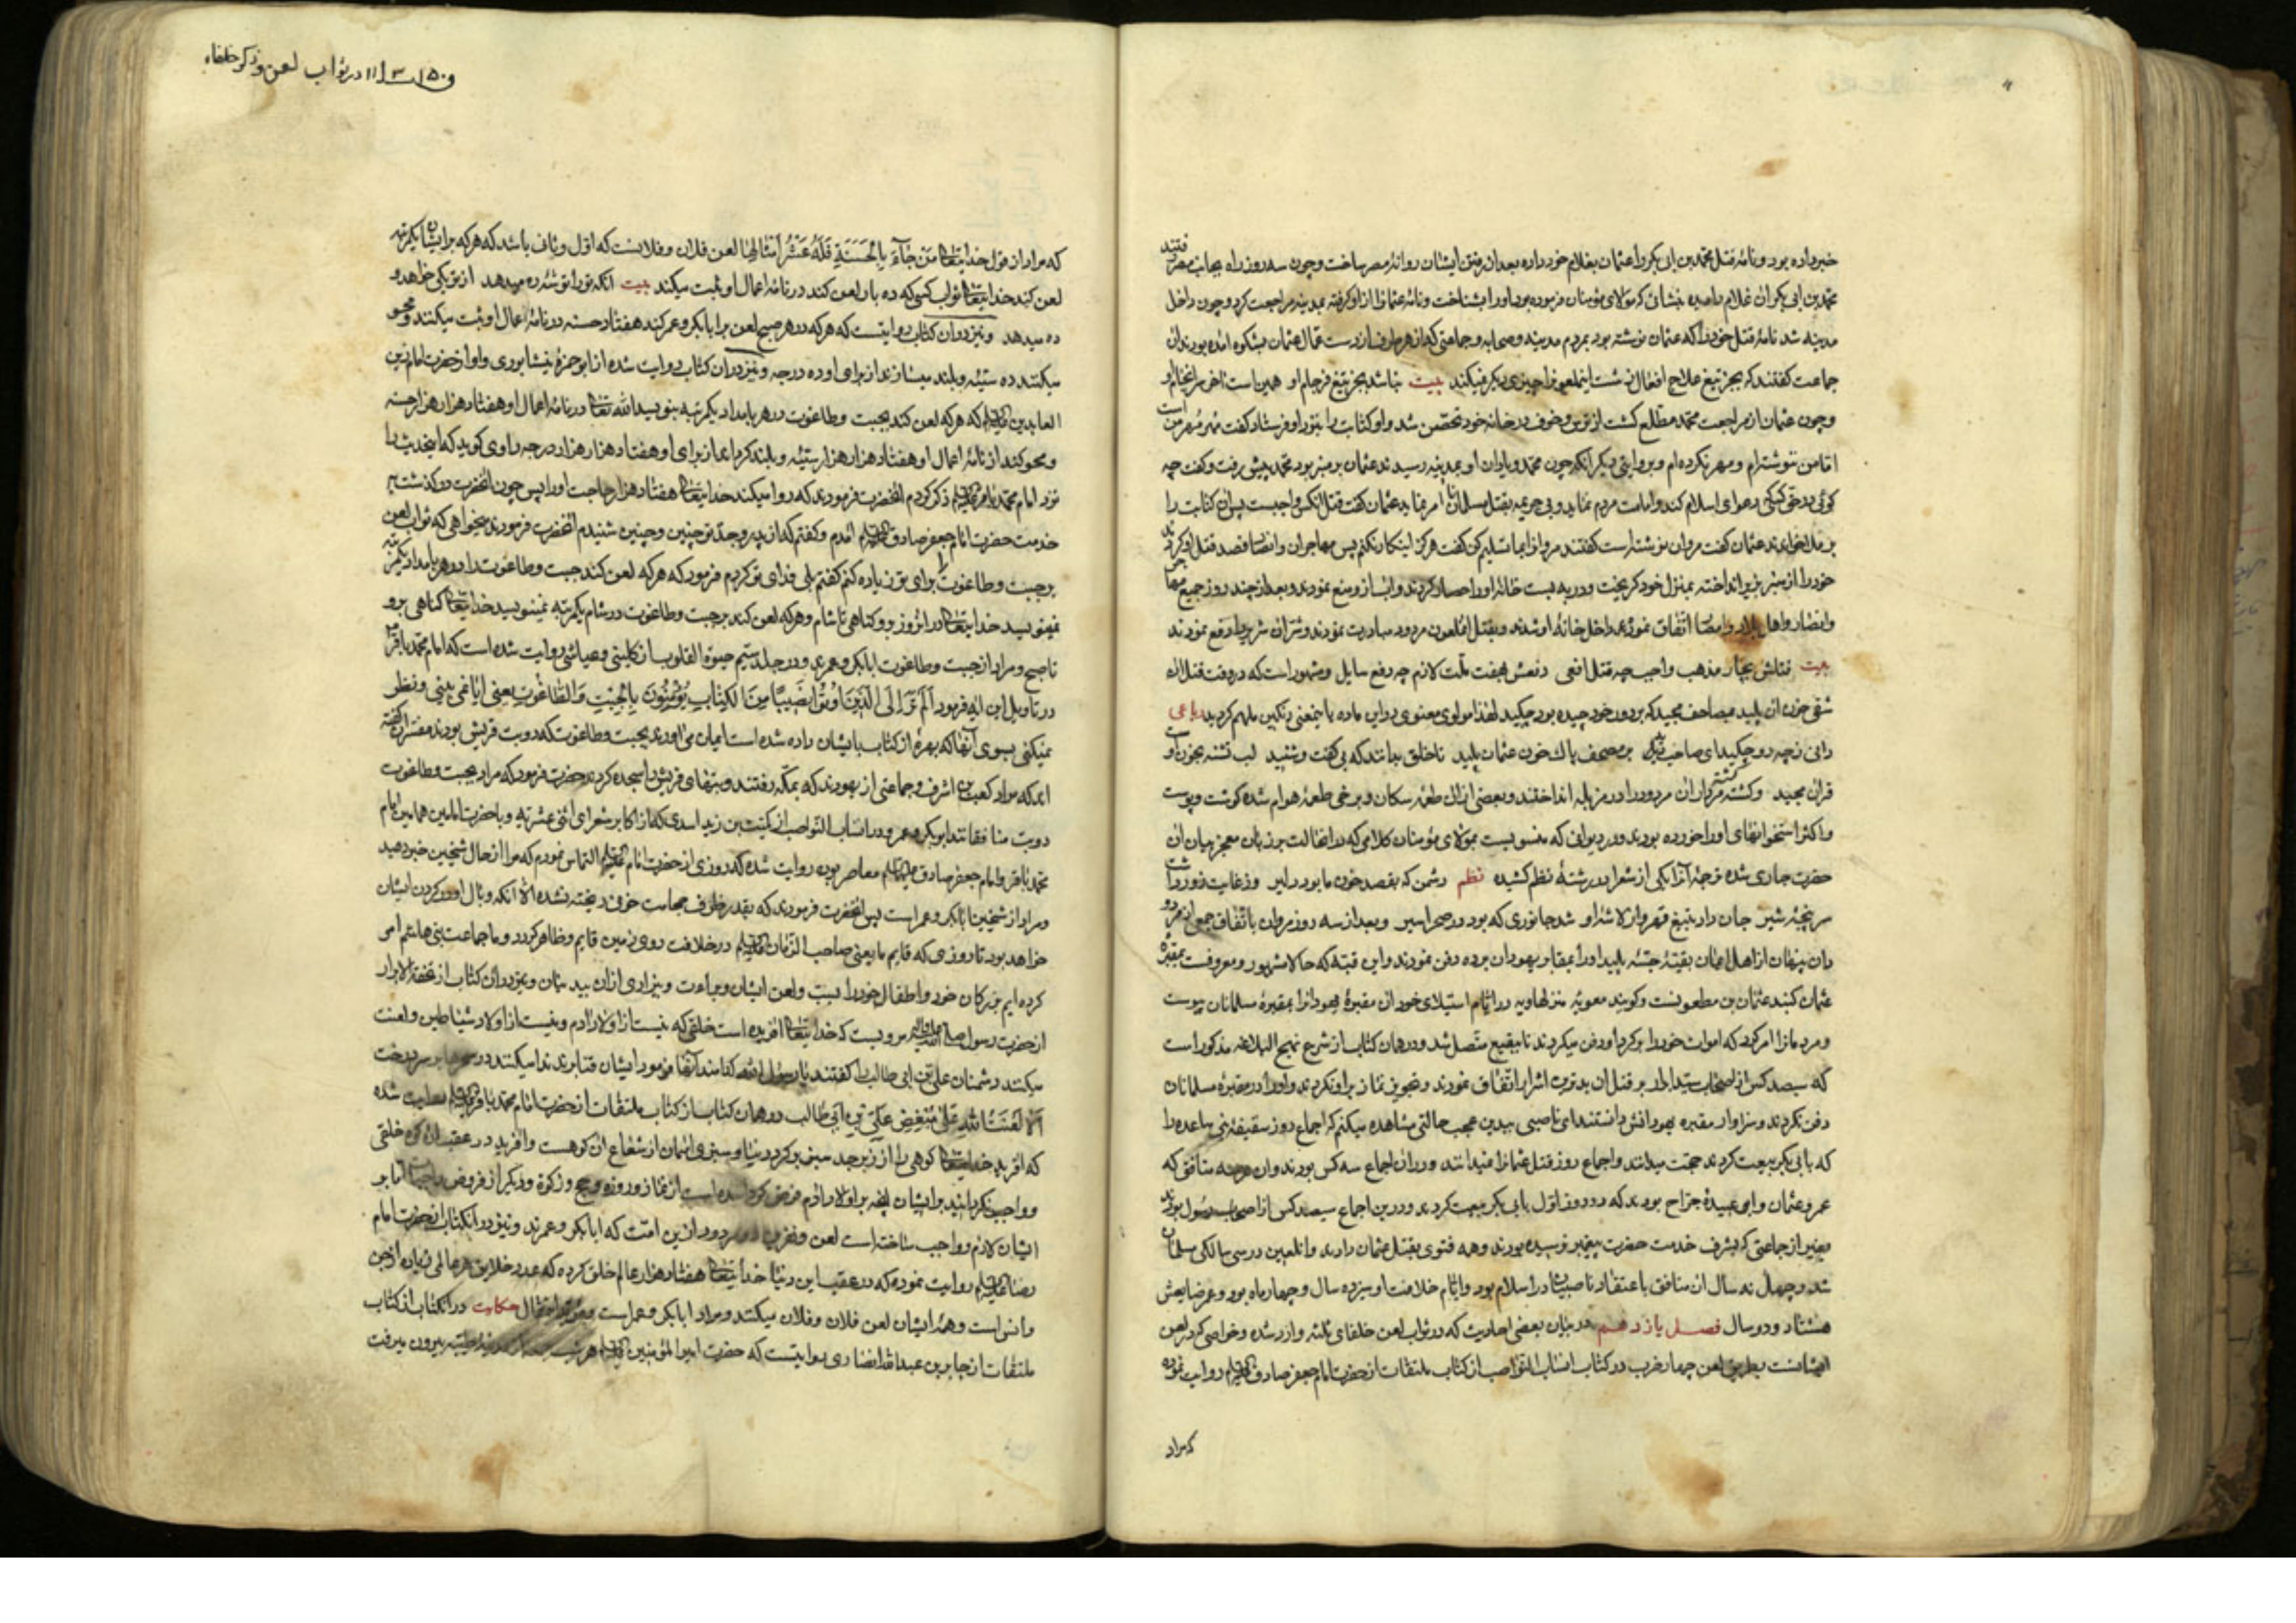 خبر داده بود و نامهٔ قتل محمد بن ابی بکر را عثمان بغلام خود داده بعد از رفتن ایشان روانهٔ مصر ساخت و چون سه روز راه بجانب مصر رفتند
محمد بن ابی بکر آن غلام را دیده بنشانی که مولای مؤمنان فرموده بود او را بشناخت و نامهٔ عثمان را از او گرفته بمدینه مراجعت کرد و چون داخل
مدینه شد نامهٔ قتل خود را که عثمان نوشته بود بمردم مدینه و صحابه و جماعتی که از هر طرف از دست عمال عثمان بشکوه آمده بودند آن
جماعت گفتند که بجز تیغ علاج افعال زشت اینملعون را چیزی دیگر نمیکند بیت نباشد بجز تیغ فرجام او همین است آخر سرانجام او
و چون عثمان از مراجعت محمد مطلع گشت از ترس و خوف در خانهٔ خود متحصن شد و او کتابت را نزد او فرستاد گفت مهر مهر من است
اما من ننوشته‌ام و مهر نکرده‌ام و بروایتی دیگر آنکه چون محمد و یاران او بمدینه رسیدند عثمان بر منبر بود محمد پیش رفت و گفت چه
گوئی در حق کسی که دعوای اسلام کند و امامت مردم نماید و بی جریمه بقتل مسلمانان امر نماید عثمان گفت قتل آنکس واجبست پس آن کتابت را
بر ملا خواندند عثمان گفت مروان نوشته است گفتند مروانرا بما تسلیم کن گفت هرگز اینکار نکنم پس مهاجران و انصار قصد قتل او کردند
خود را از منبر بزیر انداخته بمنزل خود گریخت و در به بست خانهٔ او را حصار کردند و آب از او منع نمودند و بعد از چند روز جمیع مهاجر
و انصار و اهل بلاد و امصار اتفاق نموده داخل خانهٔ او شدند و بقتل آنملعون مردود مبادرت نمودند و شر آن شریر را رفع نمودند
بیت قتلش بچهار مذهب واجب چه قتل افعی دفعش بهفت ملت لازم چه دفع سایل و مشهور است که در وقت قتل آن
شقی خون آن پلید بمصحف مجید که بر دور خود چیده بود چکید لهذا مولوی معنوی در این ماده باینمعنی رنگین ملهم گردید رباعی
دانی ز چه رو چکید ای صاحب دل بر مصحف پاک خون عثمان پلید تا خلق بدانند که بی گفت و شنید لب تشنه بخون اوست
قرآن مجید و کشته مردار آن مردود را در مزبله انداختند و بعضی از آن طعمهٔ سگان و برخی طعمهٔ هوام شده گوشت و پوست
و اکثر استخوانهای او را خورده بودند و در دیوانی که منسوبست بمولای مؤمنان کلامی که در آنحالت بر زبان معجز بیان آن
حضرت جاری شده ترجمهٔ آنرا یکی از شعرا در رشتهٔ نظم کشیده نظم دشمن که بقصد خون ما بود دلیر وز غایت زور داشت
سر پنجهٔ شیر جان داد بتیغ قهر و از لاشهٔ او شد جانوری که بود در صحرا سیر و بعد از سه روز مروان باتفاق جمعی از مردودان
دان پنهان از اهل ایمان بقیهٔ جثهٔ پلید او را بمقابر یهودان برده دفن نمودند و این قبه که حالا مشهور و معروفست بمقبرهٔ
عثمان گنبد عثمان بن مظعونست و گویند معویه منزلهاویه در ایام استیلای خود آن مقبرهٔ یهود را بمقبرهٔ مسلمانان پیوست
و مردمانرا امر کرد که اموات خود را بر گرد او دفن میکردند تا ببقیع متصل شد و در همان کتاب از شرح نهج البلاغه مذکور است
که سیصد کس از اصحاب سید ابرار بر قتل آن بدترین اشرار اتفاق نمودند و تجویز نماز بر او نکردند و او را در مقبرهٔ مسلمانان
دفن نکردند و سزاوار مقبره یهودانش دانستند ای ناصبی ببدین عجب حالتی مشاهده میکنم که اجماع روز سقیفهٔ بنی ساعده را
که بابی بکر بیعت کردند حجت میدانند و اجماع روز قتل عثمانرا نمیدانند و در آن اجماع سه کس بودند و آن هر سه منافق که
عمر و عثمان و ابی عبیدهٔ جراح بودند که در روز اول بابی بکر بیعت کردند و در این اجماع سیصد کس از اصحاب رسول بودند
بغیر از جماعتی که بشرف خدمت حضرت پیغمبر نرسیده بودند و همه فتوی بقتل عثمان دادند و آنلعین در سی سالگی مسلمان
شد و چهل نه سال آن منافق باعتقاد ناصبیان در اسلام بود و ایام خلافت او سیزده سال و چهار ماه بود و عمر ضایعش
هشتاد و دو سال فصل یازدهم در بیان بعضی احادیث که در ثواب لعن خلفای ثلثه وارد شده و خواصی که در لعن
ایشانست بطریق لعن چهار ضرب در کتاب انساب النواصب از کتاب ملتقطات از حضرت امام جعفر صادق علیه السلام روایت نموده
که مراد
در ثواب لعن و ذکر خلفاء
که مراد از قول خدایتعالی مَنْ جَاءَ بِالْحَسَنَةِ فَلَهُ عَشْرُ أَمْثَالِهَا لعن فلان و فلانست که اول و ثانی باشد که هر که بر ایشان یکمرتبه
لعن کند خدایتعالی ثواب کسی که ده بار لعن کند در نامهٔ اعمال او ثبت میکند بیت آنکه تو را توشهٔ ره میدهد از تو یکی خواهد و
ده میدهد و نیز در آن کتاب روایتست که هر که در هر صبح لعن بر ابابکر و عمر کند هفتاد حسنه در نامهٔ اعمال او ثبت میکنند و محو
میکنند ده سیئه و بلند میسازند از برای او ده درجه و نیز در آن کتاب روایت شده از ابو حمزهٔ نیشابوری و او از حضرت امام زین
العابدین علیه السلام که هر که لعن کند بجبت و طاغوت در هر بامداد یکمرتبه بنویسد الله تعالی در نامهٔ اعمال او هفتاد هزار هزار حسنه
و محو کند از نامهٔ اعمال او هفتاد هزار هزار سیئه و بلند گرداند از برای او هفتاد هزار هزار درجه راوی گوید که اینحدیث را
نزد امام محمد باقر علیه السلام ذکر کردم آنحضرت فرمودند که روا میکند خدایتعالی هفتاد هزار حاجت او را پس چون آنحضرت در گذشت به
خدمت حضرت امام جعفر صادق علیه السلام آمدم و گفتم که از پدر و جد تو چنین و چنین شنیدم آنحضرت فرمودند میخواهی که ثواب لعن
بر جبت و طاغوت را برای تو زیاده کنم گفتم بلی فدای تو گردم فرمود که هر که لعن کند جبت و طاغوت را در هر بامداد یکمرتبه
نمینویسد خدایتعالی در آنروز بر او گناهی تا شام و هر که لعن کند بر جبت و طاغوت در شام یکمرتبه نمینویسد خدایتعالی گناهی برو
تا صبح و مراد از جبت و طاغوت ابابکر و عمرند و در جلد سیم حیوة القلوب از کلینی و عیاشی روایت شده است که امام محمد باقر
در تاویل این آیه فرمود أَلَمْ تَرَ إِلَى الَّذِينَ أُوتُوا نَصِيبًا مِنَ الْكِتَابِ يُؤْمِنُونَ بِالْجِبْتِ وَالطَّاغُوتِ یعنی آیا نمی بینی و نظر
نمیکنی بسوی آنها که بهرهٔ از کتاب بایشان داده شده است ایمان می آورند بجبت و طاغوت که دو بت قریش بودند مفسران گفته
اند که مراد کعب بن اشرف و جماعتی از یهودند که بمکه رفتند و بتهای قریش را سجده کردند حضرت فرمود که مراد بجبت و طاغوت
دو بت منافقانند ابوبکر و عمر و در انساب النواصب از کمیت بن زید اسدی که از اکابر شعرای اثنی عشریه و با حضرت امامین همامین امام
محمد باقر و امام جعفر صادق علیهما السلام معاصر بوده روایت شده که روزی از حضرت امام علیه السلام التماس نمودم که مرا از حال شیخین خبر دهید
و مراد از شیخین ابابکر و عمر است پس آنحضرت فرمودند که بقدر ظرف حجامت خونی ریخته نشده الا آنکه وبال او در گردن ایشان
خواهد بود تا روزی که قایم ما یعنی صاحب الزمان علیه السلام در خلافت روی زمین قایم و ظاهر گردد و ما جماعت بنی هاشم امر
کرده‌ایم بزرگان خود و اطفال خود را بسب و لعن ایشان و براءت و بیزاری از آن بد بنیان و نیز در آن کتاب از تحفة الابرار
از حضرت رسول صلی الله علیه و آله مرویست که خدایتعالی آفریده است خلقی که نیست از اولاد آدم و نیست از اولاد شیاطین و لعنت
میکنند دشمنان علی بن ابی طالب را گفتند یا رسول الله کدامند آنها فرمود ایشان قنابرند ندا میکنند در سحرها بر سر درخت
أَلَا لَعْنَةُ اللهِ عَلَى مُبْغِضِ عَلِيِّ بْنِ أَبِي طَالِبٍ در همان کتاب از کتاب ملتقطات از حضرت امام محمد باقر علیه السلام روایت شده
که آفرید خدایتعالی کوهی را از زبرجد سبز بر گرد دنیا و سبزی آسمان از شعاع آن کوهست و آفرید در عقب آن کوه خلقی
و واجب نگردانید بر ایشان آنچه بر اولاد آدم فرض کرده شده است از نماز و روزه و حج و زکوة و دیگر از فروض اما بر
ایشان لازم و واجب ساخته است لعن و نفرین دو مردود از این امت که ابابکر و عمرند و نیز در آنکتاب از حضرت امام
رضا علیه السلام روایت نموده که در عقب این دنیا خدایتعالی هفتاد هزار عالم خلق کرده که عدد خلایق هر عالمی زیاده از جن
و انس است و همهٔ ایشان لعن فلان و فلان میکنند و مراد ابابکر و عمر است حکایت در آنکتاب از کتاب
ملتقطات از جابر بن عبدالله انصاری روایتست که حضرت امیر المؤمنین علیه السلام هر شب بیرون میرفت